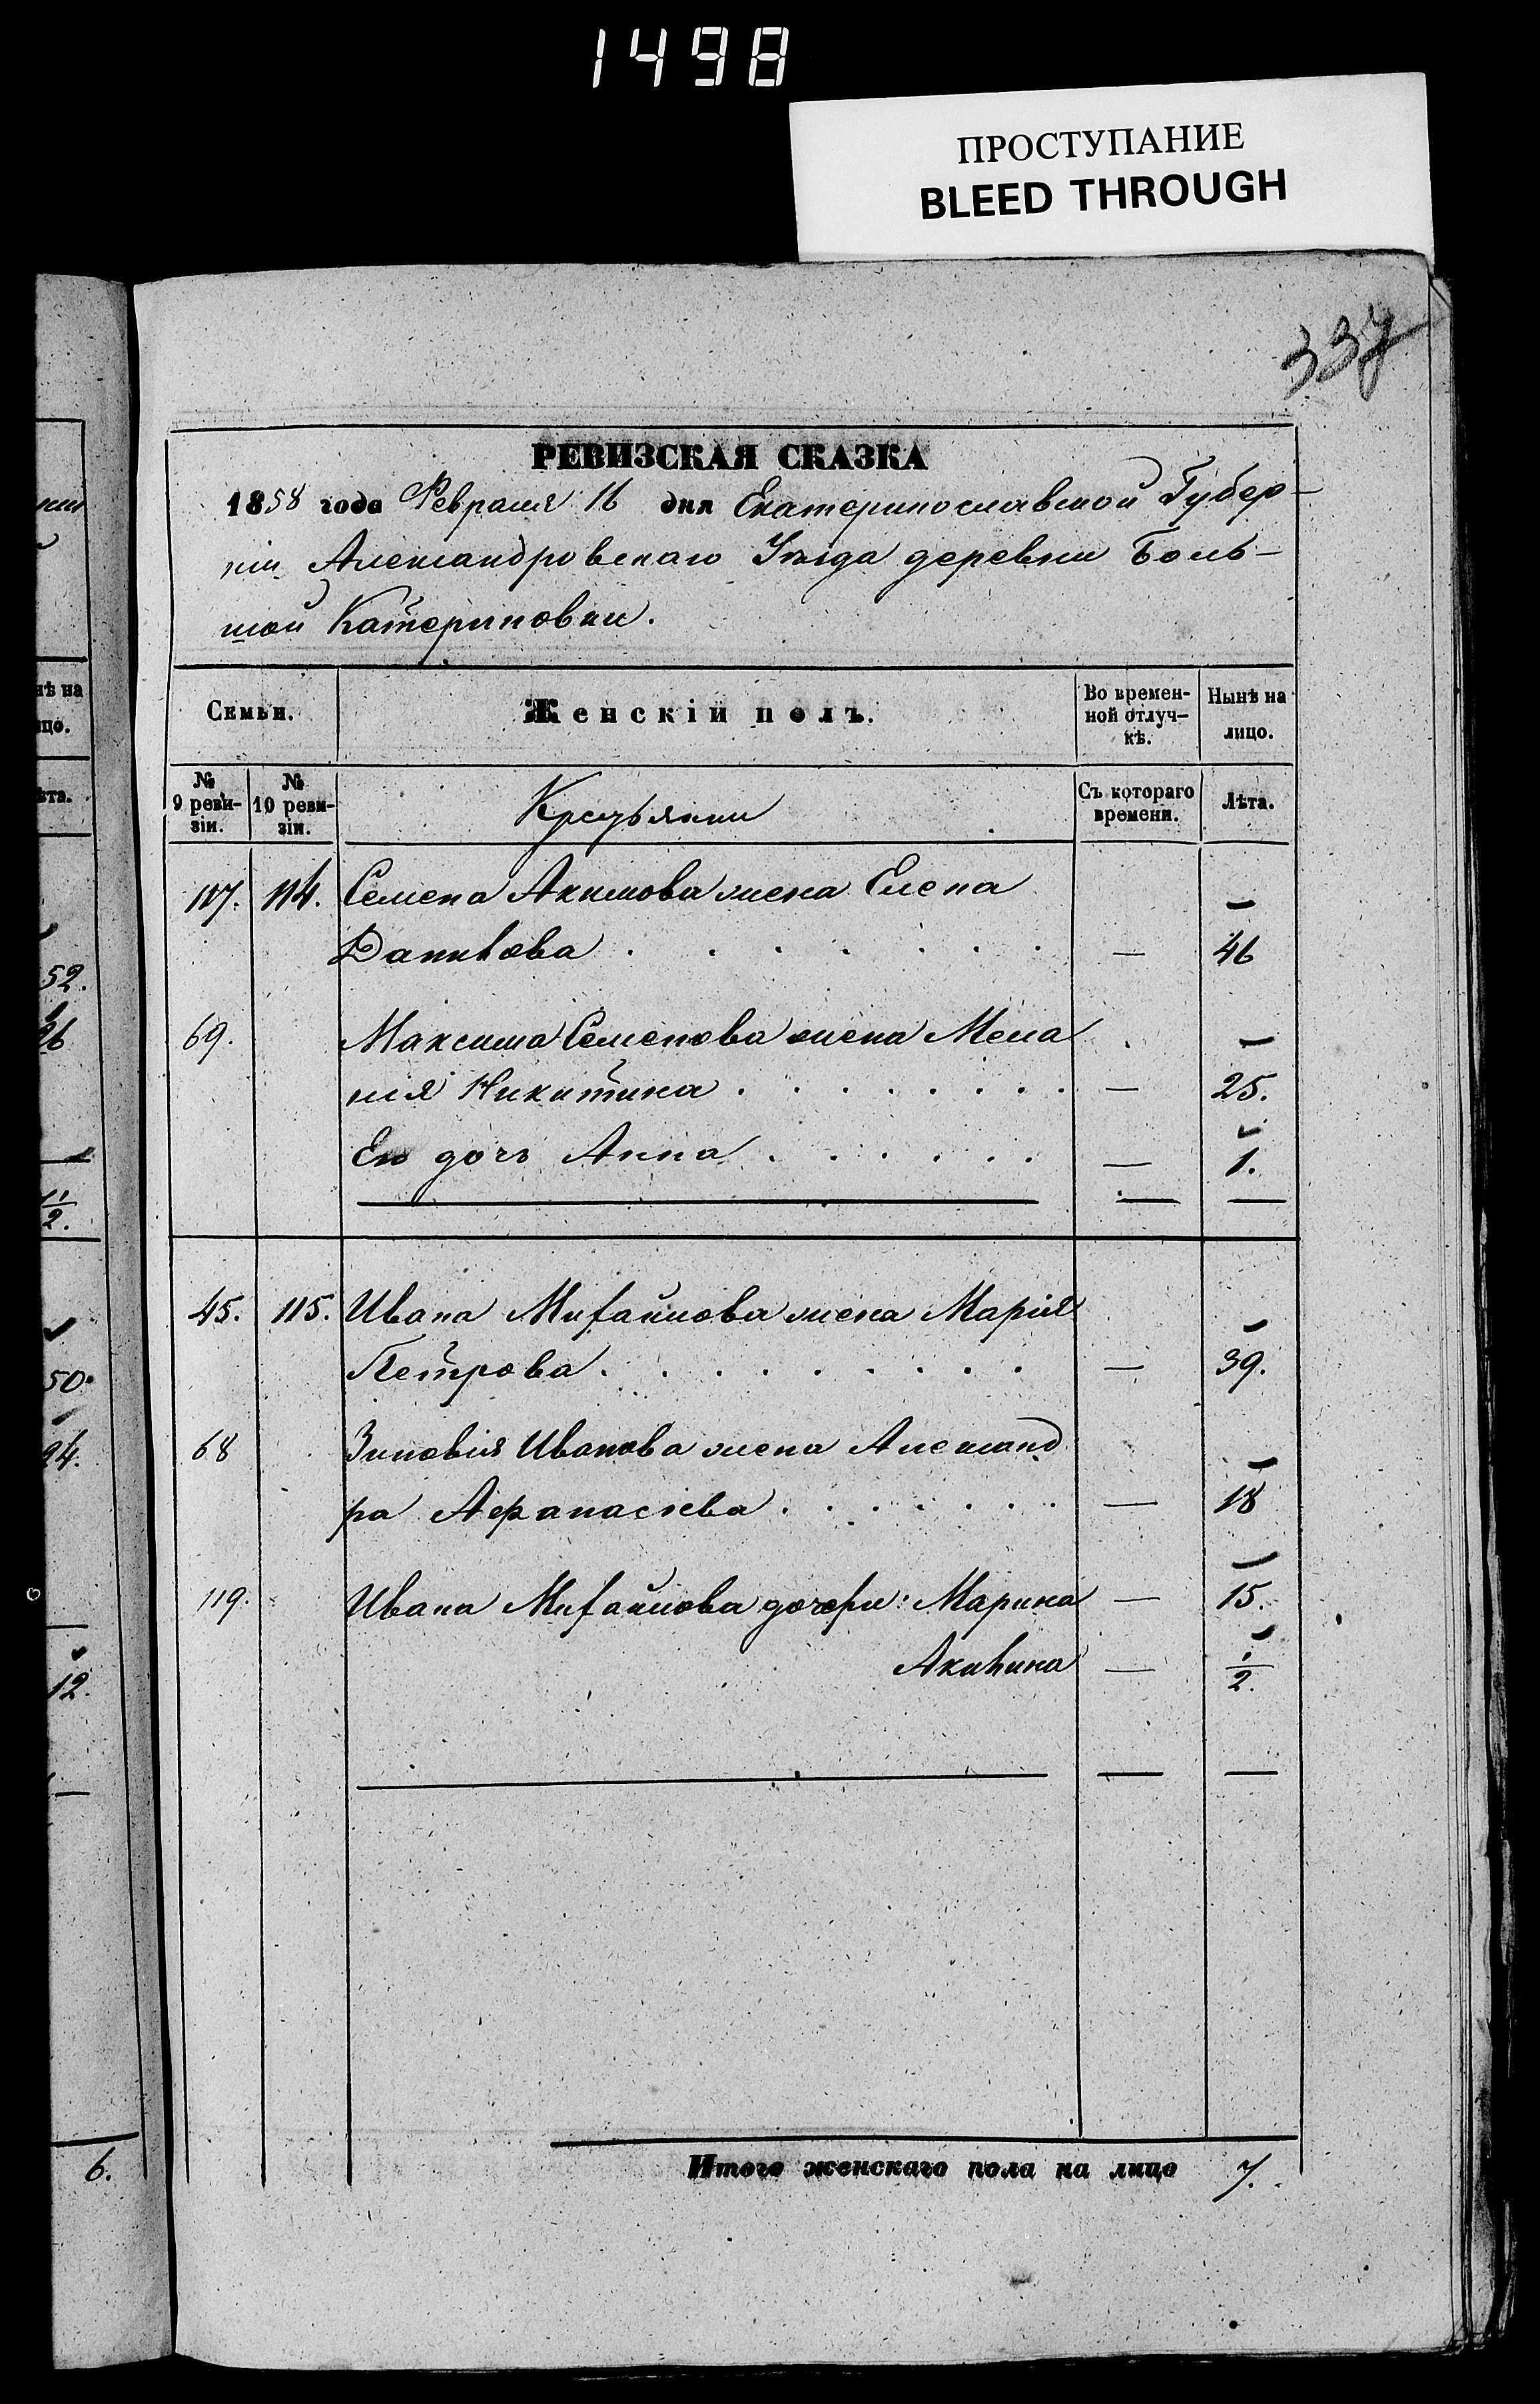 1498
ПРОСТУПАНИЕ
BLEED THROUGH
337
РЕВИЗСКАЯ СКАЗКА
1858 года Февраля 16 дня Екатеринославской Губер-
ніи Александровскаго Уѣзда деревни Боль-
шой Катериновки.
Семьи. Женскій полъ. Во времен-ной отлуч-кѣ. Нынѣ на лицо.
№ 9 реви-зіи. № 10 реви-зіи. Крестьянки Съ котораго времени. Лѣта.
107. 114. Семена Акимова жена Елена
Данилова — 46
69. Максима Семенова жена Мела
нія Никитина — 25.
Его дочь Анна — 1.
45. 115. Ивана Михайлова жена Марія
Петрова — 39.
68 Зиновія Иванова жена Александ
ра Афанасіева — 18
119. Ивана Михайлова дочери: Марина — 15.
Акилина — 1/2.
Итого женскаго пола на лицо 7.
нѣ на
цо.
ѣта.
52.
26
1/2.
50.
24.
12.
6.